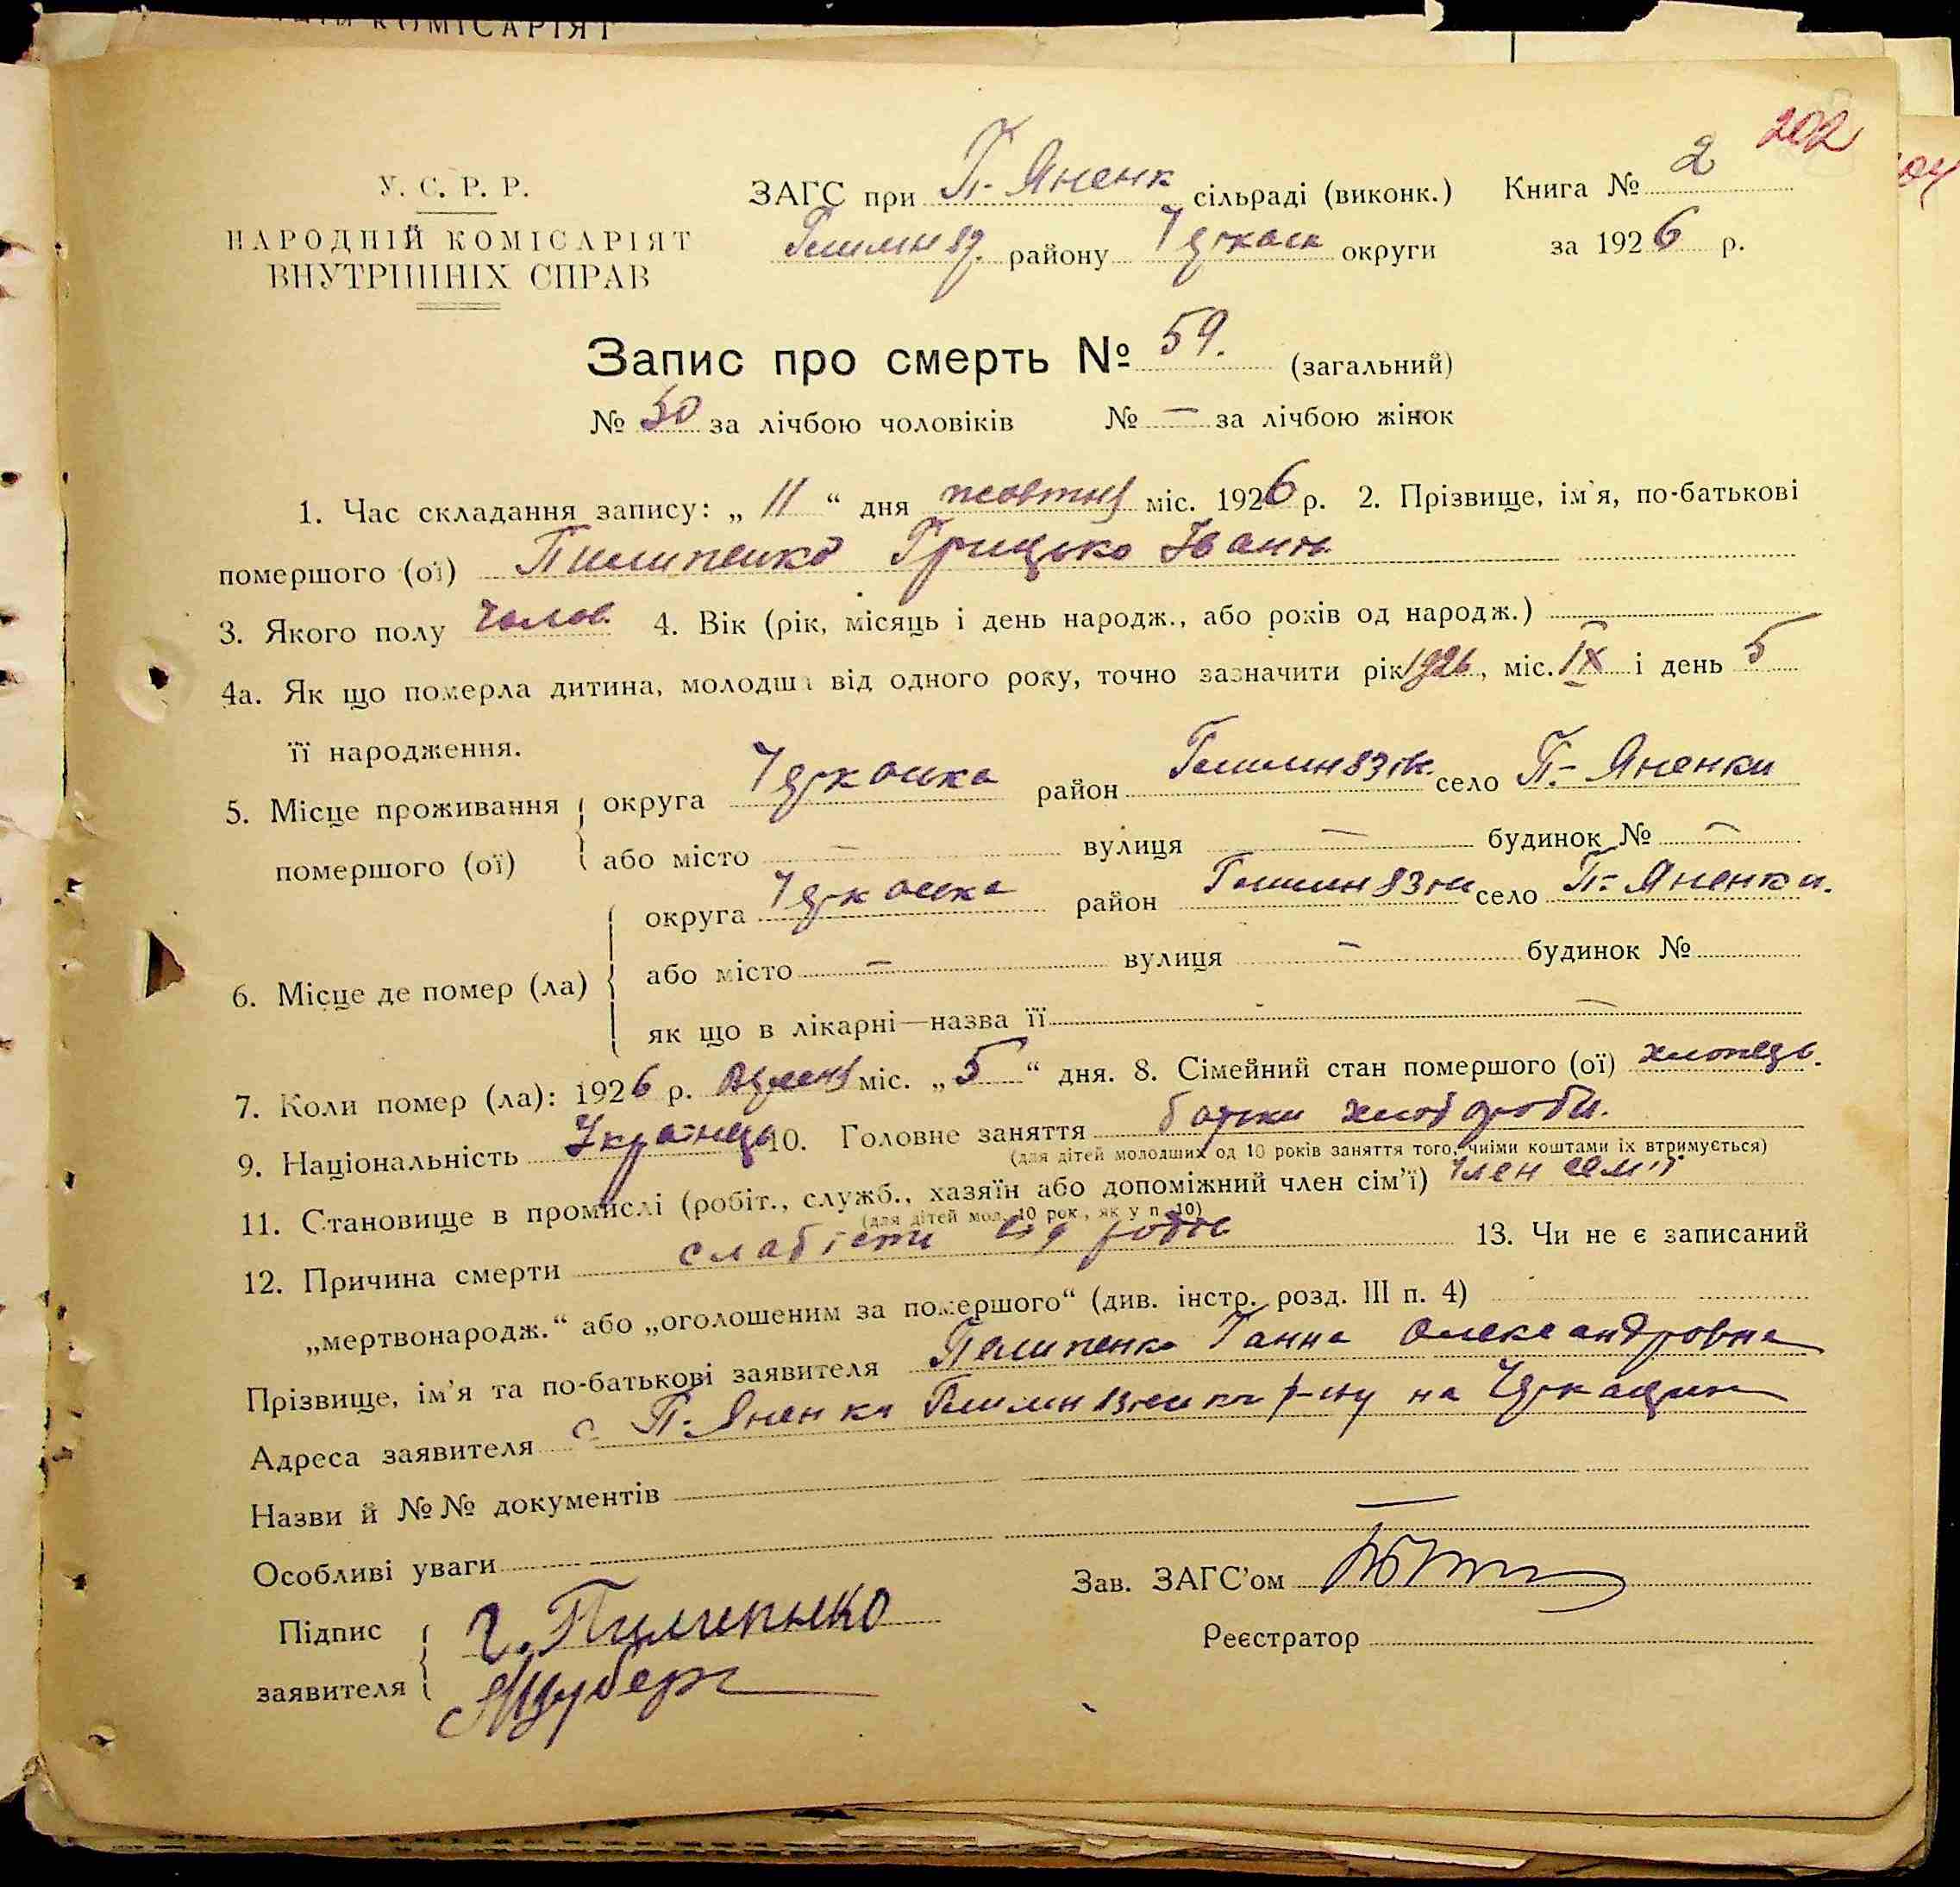 КОМІСАРІЯТ
202
У. С. Р. Р.
НАРОДНІЙ КОМІСАРІЯТ
ВНУТРІШНІХ СПРАВ
ЗАГС при П-Яненк сільраді (виконк.) Книга № 2
району Черкаск округи за 1926 р.
Запис про смерть № 59. (загальний)
№ 50 за лічбою чоловіків № — за лічбою жінок
1. Час складання запису: „ 11 “ дня жовтня міс. 1926 р. 2. Прізвище, ім'я, по-батькові
помершого (ої) Пилипенко Грицько Іван
3. Якого полу чолов. 4. Вік (рік, місяць і день народж., або років од народж.)
4а. Як що померла дитина, молодша від одного року, точно зазначити рік 1926, міс. IX і день 5
її народження.
5. Місце проживання помершого (ої) округа Черкаська район село П.- Яненки
або місто — вулиця — будинок № —
6. Місце де помер (ла) округа Черкаська район село П.- Яненки.
або місто — вулиця — будинок №
як що в лікарні—назва її —
7. Коли помер (ла): 1926 р. міс. „ 5 “ дня. 8. Сімейний стан помершого (ої) хлопець.
9. Національність Українець 10. Головне заняття батьки хлібороби.
(для дітей молодших од 10 років заняття того, чиїми коштами їх втримується)
11. Становище в промислі (робіт., служб., хазяїн або допоміжний член сім'ї) член сем'ї
(для дітей мол. 10 рок., як у п. 10)
12. Причина смерти слабість від родів 13. Чи не є записаний
„мертвонародж.“ або „оголошеним за помершого“ (див. інстр. розд. III п. 4)
Прізвище, ім'я та по-батькові заявителя Пелипенко Ганна Олександровна
Адреса заявителя с П. Яненки р-ну на Черкащині
Назви й №№ документів
Особливі уваги —
Зав. ЗАГС'ом
Підпис заявителя Г. Пилипенко
Реєстратор